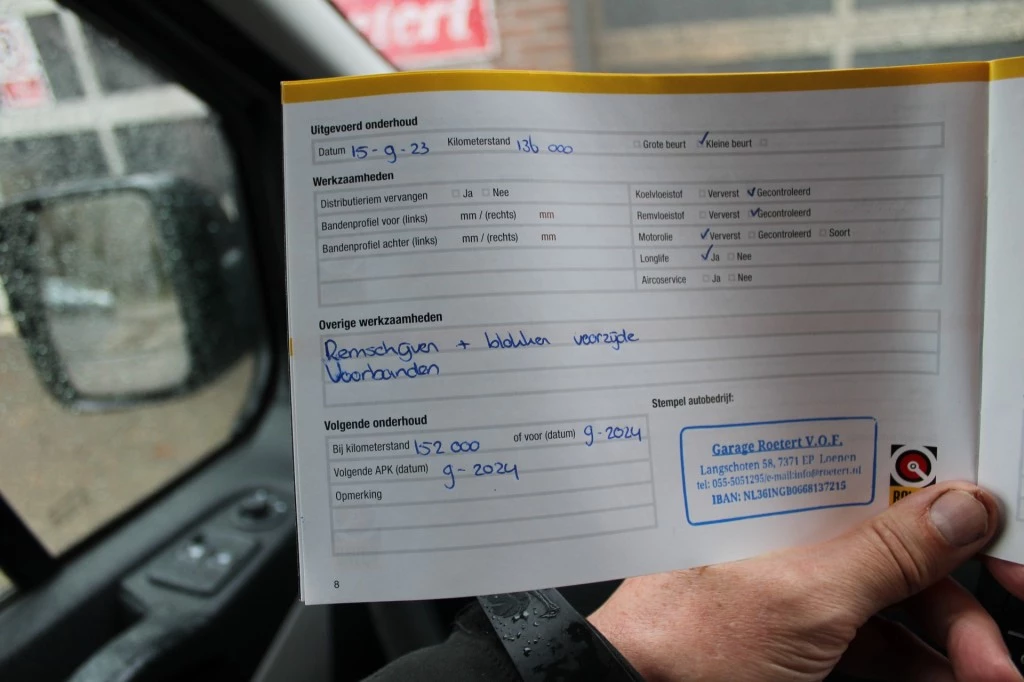 Uitgevoerd onderhoud
Datum 15-9-23 Kilometerstand 136 000 Grote beurt Kleine beurt
Werkzaamheden
Distributieriem vervangen Ja Nee
Bandenprofiel voor (links) mm / (rechts) mm
Bandenprofiel achter (links) mm / (rechts) mm
Koelvloeistof Ververst Gecontroleerd
Remvloeistof Ververst Gecontroleerd
Motorolie Ververst Gecontroleerd Soort
Longlife Ja Nee
Aircoservice Ja Nee
Overige werkzaamheden
Remschijven + blokken voorzijde
Voorbanden
Volgende onderhoud
Bij kilometerstand 152 000 of voor (datum) 9-2024
Volgende APK (datum) 9-2024
Opmerking
Stempel autobedrijf:
Garage Roetert V.O.F.
Langschoten 58, 7371 EP Loenen
tel: 055-5051295/e-mail:info@roetert.nl
IBAN: NL36INGB0668137215
8